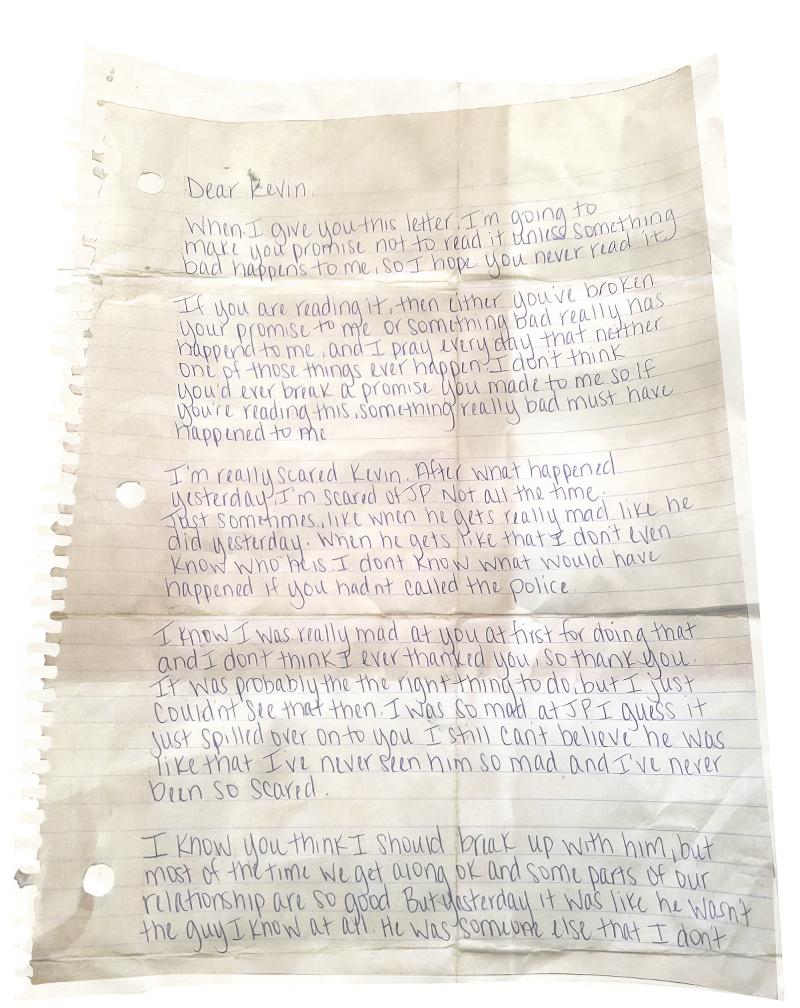 Dear Kevin.
When I give you this letter, I'm going to
make you promise not to read it unless something
bad happens to me, so I hope you never read it.
If you are reading it, then either you've broken
your promise to me or something bad really has
happend to me, and I pray every day that neither
one of those things ever happen. I don't think
you'd ever break a promise you made to me so If
you're reading this, something really bad must have
happened to me
I'm really scared Kevin. After what happened
yesterday, I'm scared of JP. Not all the time.
Just sometimes, like when he gets really mad like he
did yesterday. When he gets like that I don't even
know who he is. I dont know what would have
happened if you hadnt called the police.
I know I was really mad at you at first for doing that
and I dont think I ever thanked you, so thank you.
It was probably the the right thing to do, but I just
couldnt see that then. I was so mad at JP I guess it
just spilled over onto you I still cant believe he was
like that I've never seen him so mad and I've never
been so scared.
I know you think I should break up with him, but
most of the time we get along ok and some parts of our
relationship are so good But yesterday it was like he wasn't
the guy I know at all. He was someone else that I don't